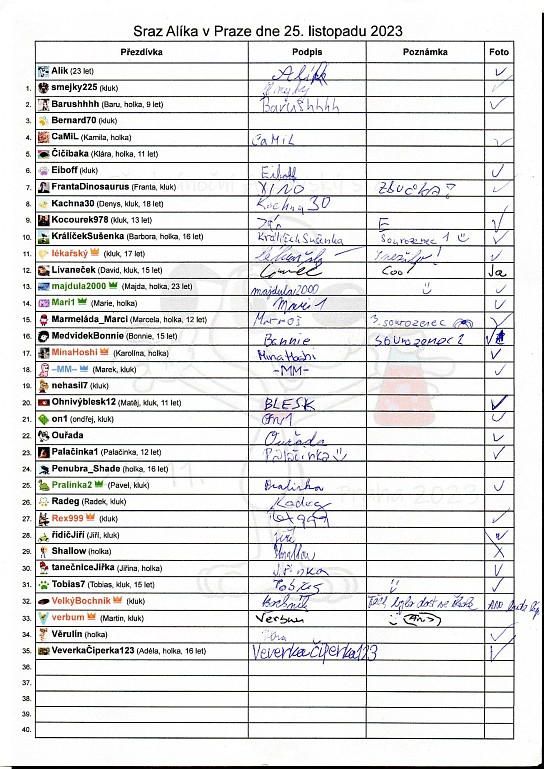 Sraz Alíka v Praze dne 25. listopadu 2023
Přezdívka Podpis Poznámka Foto
Alik (23 let) Alík
1. smejky225 (kluk)
2. Barushhhh (Baru, holka, 9 let) Barushhhh
3. Bernard70 (kluk)
4. CaMiL (Kamila, holka) CaMiL
5. Čičibaka (Klára, holka, 11 let)
6. Eiboff (kluk) Eiboff
7. FrantaDinosaurus (Franta, kluk) DINO
8. Kachna30 (Denys, kluk, 18 let) Kachna30
9. Kocourek978 (kluk, 13 let) E
10. KrálíčekSušenka (Barbora, holka, 16 let) KrálíčekSušenka sourozenec 1
11. lékařský (kluk, 17 let)
12. Lívaneček (David, kluk, 15 let) Cool Ja
13. majdula2000 (Majda, holka, 23 let) majdula2000
14. Mari1 (Marie, holka) Mari1
15. Marmeláda_Marci (Marcela, holka, 12 let) 3. sourozenec
16. MedvídekBonnie (Bonnie, 15 let) Bonnie sourozenec 2
17. MinaHoshi (Karolína, holka) MinaHoshi
18. –MM– (Marek, kluk) -MM-
19. nehasil7 (kluk)
20. Ohnivýblesk12 (Matěj, kluk, 11 let) BLESK
21. on1 (ondřej, kluk) on1
22. Ouřada Ouřada
23. Palačinka1 (Palačinka, 12 let) Palačinka
24. Penubra_Shade (holka, 16 let)
25. Pralinka2 (Pavel, kluk) Pralinka
26. Radeg (Radek, kluk) Radeg
27. Rex999 (kluk)
28. řidičJiří (Jiří, kluk) Jiří
29. Shallow (holka) Shallow
30. tanečniceJiřka (Jiřina, holka) Jiřinka
31. Tobias7 (Tobias, kluk, 15 let) Tobias
32. VelkýBochník (kluk) Bochník
33. verbum (Martin, kluk) Verbum
34. Věrulín (holka) Věra
35. VeverkaČiperka123 (Adéla, holka, 16 let) VeverkaČiperka123
36.
37.
38.
39.
40.